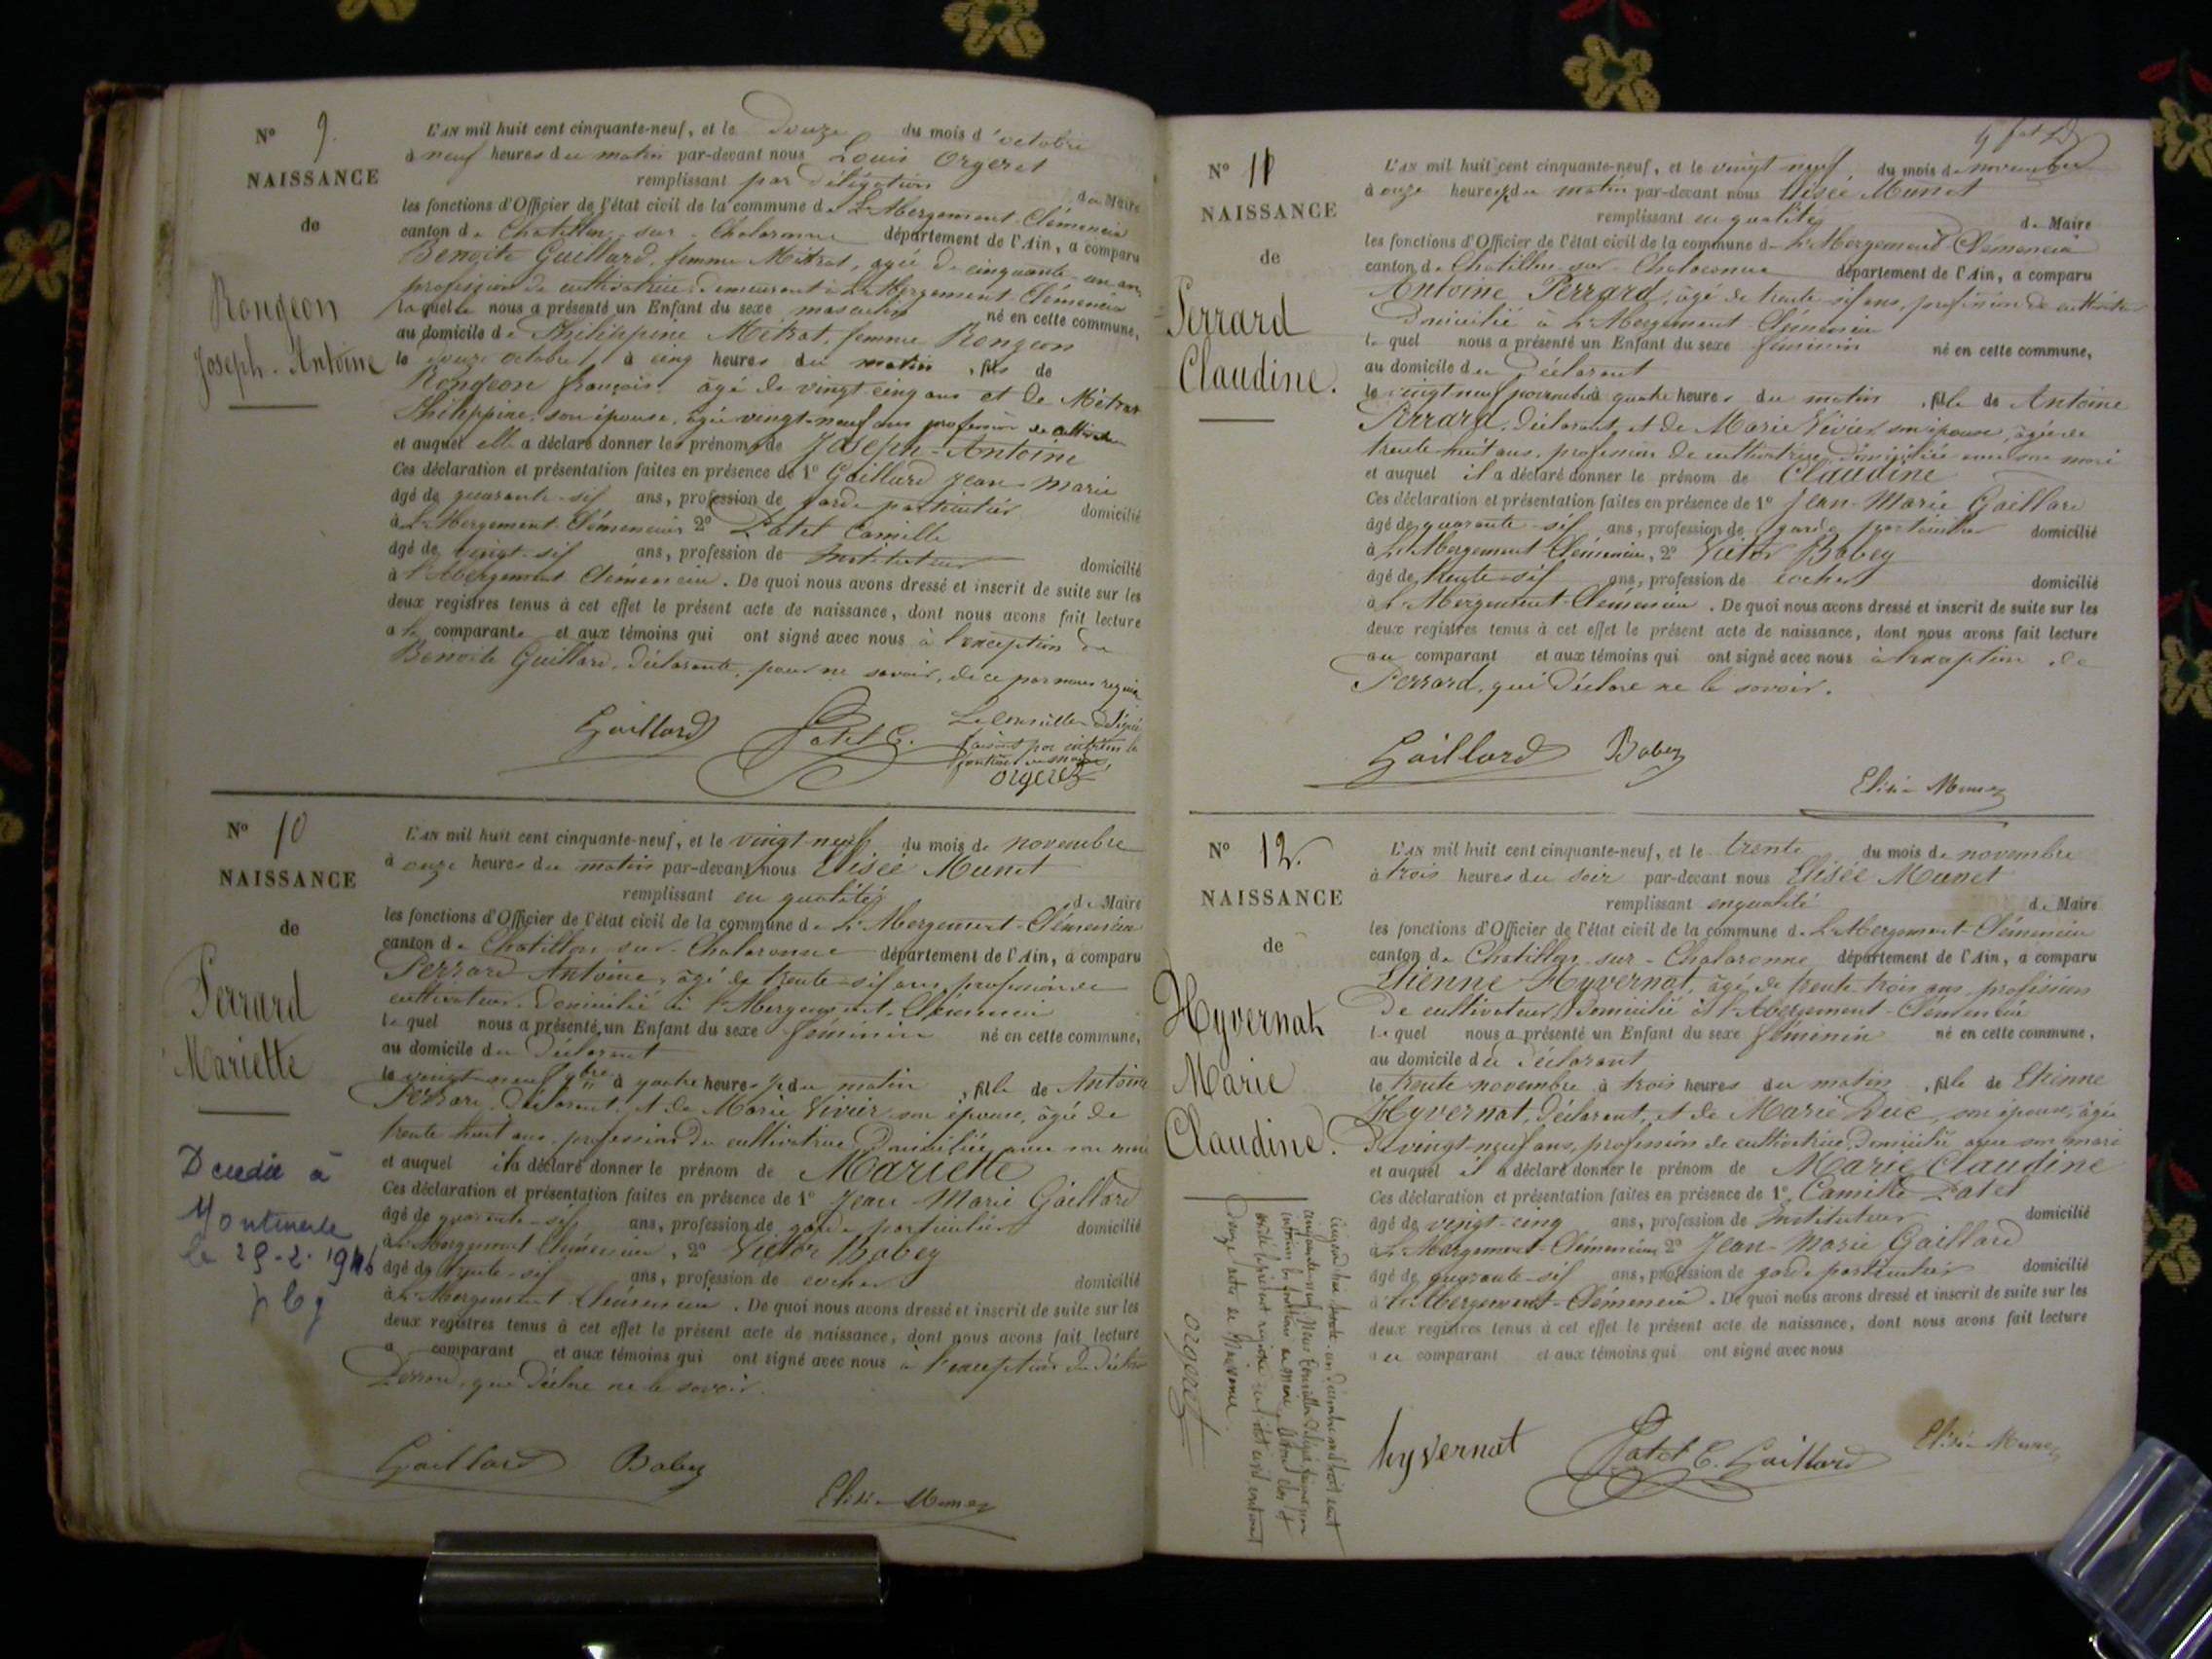 N° 9.
NAISSANCE
de
Rongeon
Joseph-Antoine
L'AN mil huit cent cinquante-neuf, et le douze du mois d'octobre
à neuf heures du matin par-devant nous Louis Orgeret
remplissant par délégation de Maire
les fonctions d'Officier de l'état civil de la commune de L'Abergement-Clémencia
canton de Chatillon-sur-Chalaronne département de l'Ain, a comparu
Benoite Guillard, femme Métrat, agée de cinquante-un ans,
profession de cultivatrice demeurant à L'Abergement-Clémencia
laquelle nous a présenté un Enfant du sexe masculin né en cette commune,
au domicile de Philippine Métrat, femme Rongeon
le douze octobre, à cinq heures du matin, fils de
Rongeon françois, âgé de vingt-cinq ans et de Métrat
Philippine, son épouse, agée vingt-neuf ans profession de cultivateur
et auquel elle a déclaré donner les prénoms de Joseph-Antoine
Ces déclaration et présentation faites en présence de 1° Gaillard Jean-Marie
âgé de quarante-six ans, profession de garde particulier domicilié
à L'Abergement-Clémencia 2° Patet Camille
âgé de vingt-six ans, profession de Instituteur domicilié
à l'Abergement Clémencia. De quoi nous avons dressé et inscrit de suite sur les
deux registres tenus à cet effet le présent acte de naissance, dont nous avons fait lecture
a la comparante et aux témoins qui ont signé avec nous à l'exception de
Benoite Guillard, déclarante, pour ne savoir, de ce par nous requise
Gaillard Patet C. Le conseiller délégué
faisant par intérim les
fonctions de maire,
Orgeret
N° 10
NAISSANCE
de
Perrard
Mariette
Décédée à
le 29-2-1946
L'AN mil huit cent cinquante-neuf, et le vingt-neuf du mois de novembre
à onze heures du matin par-devant nous Elisée Munet
remplissant en qualité de Maire
les fonctions d'Officier de l'état civil de la commune de L'Abergement-Clémencia
canton de Chatillon-sur-Chalaronne département de l'Ain, a comparu
Perrard Antoine, âgé de trente-six ans, profession de
cultivateur, domicilié à l'Abergement-Clémencia
lequel nous a présenté un Enfant du sexe féminin né en cette commune,
au domicile du Déclarant
le vingt-neuf 9bre à quatre heures du matin, fille de Antoine
Perrard, déclarant, et de Marie Vivier son épouse, âgée de
trente huit ans, profession de cultivatrice domiciliée avec son mari
et auquel il a déclaré donner le prénom de Mariette
Ces déclaration et présentation faites en présence de 1° Jean-Marie Gaillard
âgé de quarante-six ans, profession de garde particulier domicilié
à L'Abergement Clémencia, 2° Victor Babey
âgé de trente-six ans, profession de cocher domicilié
à L'Abergement Clémencia. De quoi nous avons dressé et inscrit de suite sur les
deux registres tenus à cet effet le présent acte de naissance, dont nous avons fait lecture
a comparant et aux témoins qui ont signé avec nous à l'exception du
Perrard, qui déclare ne le savoir.
Gaillard Babey
Elisée Munet
N° 11
NAISSANCE
de
Perrard
Claudine.
L'AN mil huit cent cinquante-neuf, et le vingt neuf du mois de novembre
à onze heures du matin par-devant nous Elisée Munet
remplissant en qualité de Maire
les fonctions d'Officier de l'état civil de la commune de L'Abergement-Clémencia
canton de Chatillon-sur-Chalaronne département de l'Ain, a comparu
Antoine Perrard, âgé de trente-six ans, profession de cultivateur
Domicilié à L'Abergement Clémencia
lequel nous a présenté un Enfant du sexe féminin né en cette commune,
au domicile du Déclarant
le vingt neuf novembre à quatre heures du matin, fille de Antoine
Perrard, déclarant, et de Marie Vivier, son épouse, âgée de
trente huit ans, profession de cultivatrice, domiciliée avec son mari
et auquel il a déclaré donner le prénom de Claudine
Ces déclaration et présentation faites en présence de 1° Jean-Marie Gaillard
âgé de quarante-six ans, profession de garde particulier domicilié
à L'Abergement Clémencia, 2° Victor Babey
âgé de trente-six ans, profession de cocher domicilié
à L'Abergement-Clémencia. De quoi nous avons dressé et inscrit de suite sur les
deux registres tenus à cet effet le présent acte de naissance, dont nous avons fait lecture
au comparant et aux témoins qui ont signé avec nous à l'exception de
Perrard, qui déclare ne le savoir.
Gaillard Babey
Elisée Munet
N° 12.
NAISSANCE
de
Hyvernat
Marie
Claudine.
L'AN mil huit cent cinquante-neuf, et le trente du mois de novembre
à trois heures du soir par-devant nous Elisée Munet
remplissant en qualité de Maire
les fonctions d'Officier de l'état civil de la commune de L'Abergement-Clémencia
canton de Chatillon-sur-Chalaronne département de l'Ain, a comparu
Etienne Hyvernat, âgé de trente trois ans, profession
De cultivateur, Domicilié à l'Abergement-Clémencia
lequel nous a présenté un Enfant du sexe féminin né en cette commune,
au domicile du déclarant
le trente novembre à trois heures du matin, fille de Etienne
Hyvernat, déclarant, et de Marie Duc, son épouse, âgée
De vingt-neuf ans, profession de cultivatrice, Domiciliée avec son mari
et auquel il a déclaré donner le prénom de Marie Claudine
Ces déclaration et présentation faites en présence de 1° Camille Patet
âgé de vingt-cinq ans, profession de Instituteur domicilié
à L'Abergement-Clémencia 2° Jean-Marie Gaillard
âgé de quarante-six ans, profession de garde particulier domicilié
à l'Abergement-Clémencia. De quoi nous avons dressé et inscrit de suite sur les
deux registres tenus à cet effet le présent acte de naissance, dont nous avons fait lecture
au comparant et aux témoins qui ont signé avec nous
hyvernat Patet C. Gaillard Elisée Munet
Aujourd'hui trente-un décembre mil huit cent
cinquante-neuf, Nous Conseiller délégué faisant par
intérim les fonctions de maire, avons clos et
arrêté le présent registre de l'état civil, contenant
Douze actes de Naissance.
Orgeret